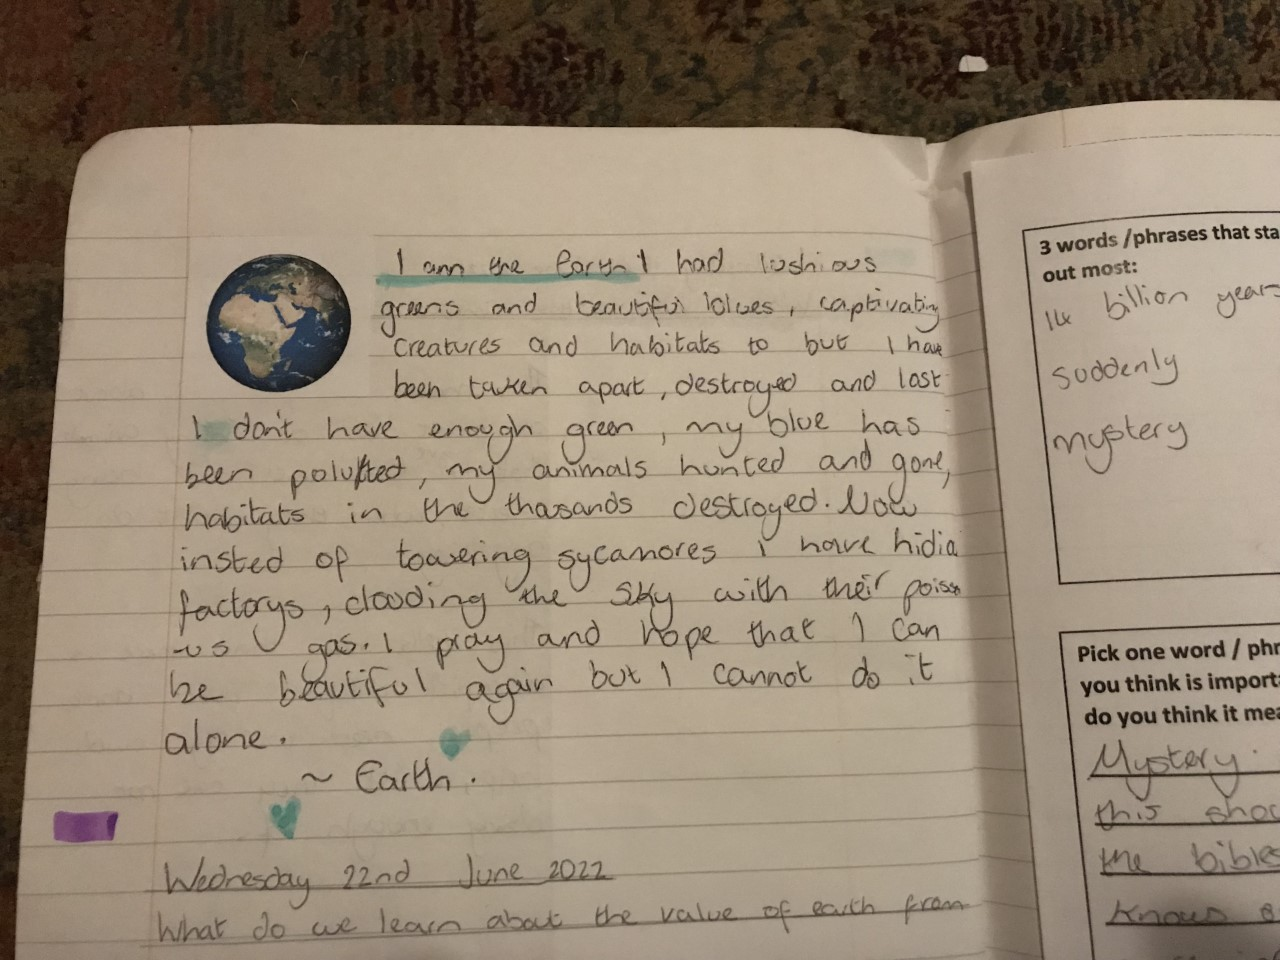 I am the Earth I had lushious
greens and beautiful blues, captivating
creatures and habitats to but I have
been taken apart, destroyed and lost
I don't have enough green, my blue has
been polutted, my animals hunted and gone,
habitats in the thasands destroyed. Now
insted of towering sycamores i have hidia
factorys, clouding the sky with their poison
-us gas. I pray and hope that I can
be beautiful again but I cannot do it
alone.
~ Earth.
Wednesday 22nd June 2022
What do we learn about the value of earth from
3 words /phrases that sta
out most:
14 billion years
suddenly
mystery
Pick one word / phr
you think is importa
do you think it mea
Mystery.
this shoc
the bibles
Knows